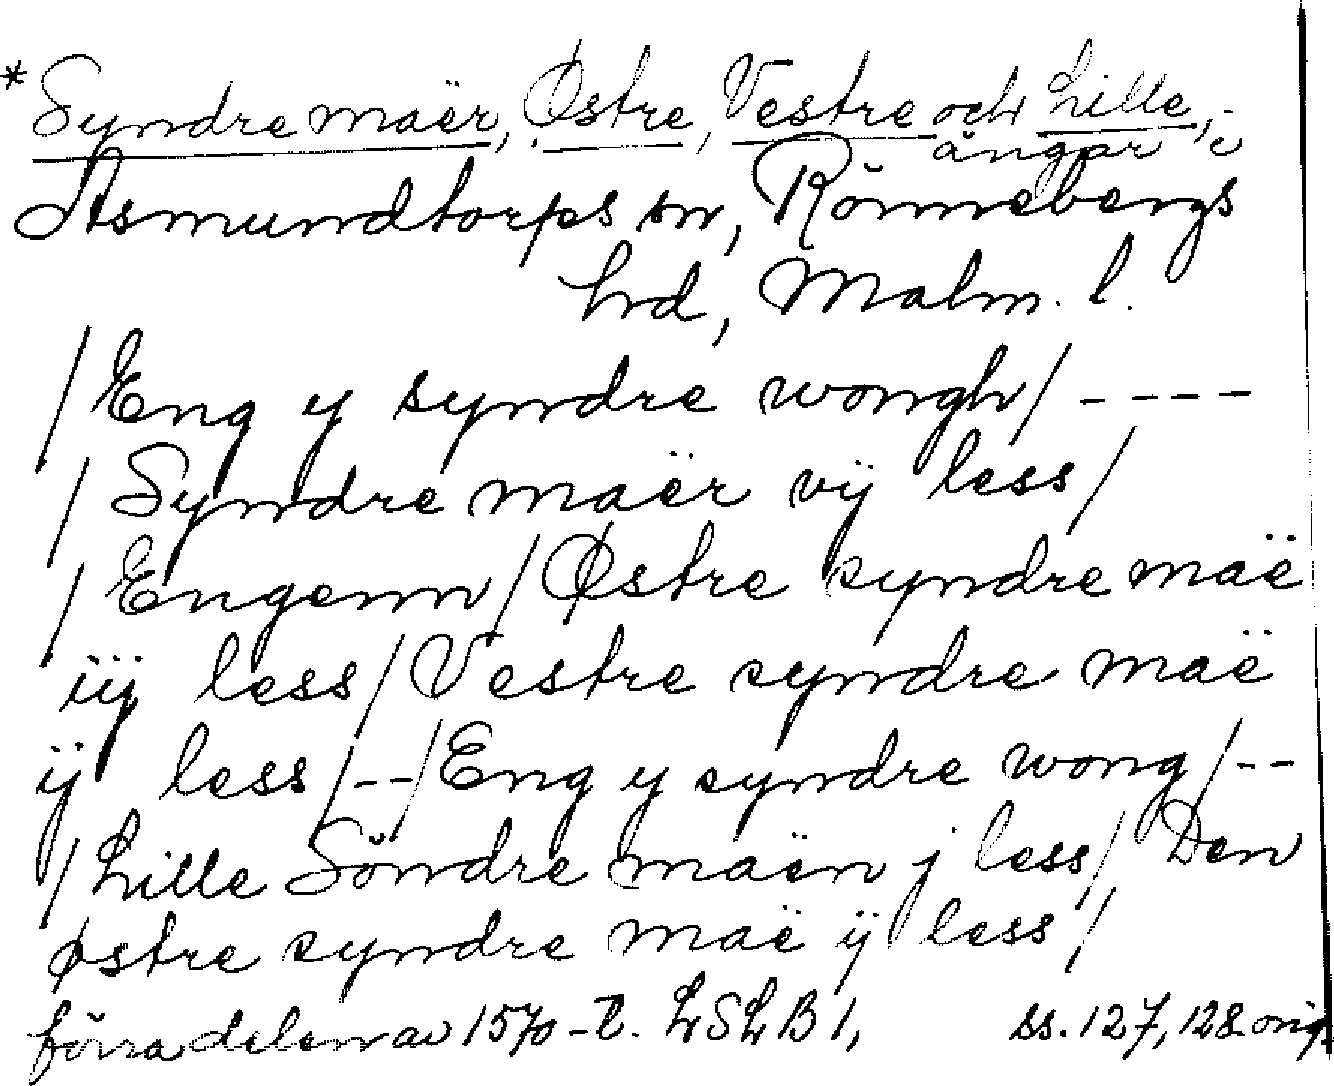 *Syndre maër, Østre, Vestre och Lille,
ängar i
Asmundtorps sn, Rönnebergs
hrd, Malm. l.
/Eng y syndre wongh/ ----
/Syndre maër vÿ less/
/Engenn/Østre syndre maë
iÿ less/Vestre syndre maë
ÿ less/--/Eng y syndre wong/--
/Lille Söndre maën j less/ Den
østre syndre maë ÿ less/
förra delen av 1570-t. LSLB 1, ss. 127, 128 orig.